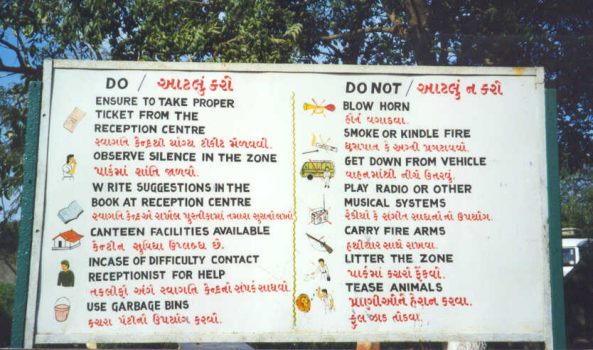 DO / આટલું કરો
ENSURE TO TAKE PROPER
TICKET FROM THE
RECEPTION CENTRE
સ્વાગત કેન્દ્રથી યોગ્ય ટીકીટ મેળવવી.
OBSERVE SILENCE IN THE ZONE
પાર્કમાં શાંતિ જાળવી.
WRITE SUGGESTIONS IN THE
BOOK AT RECEPTION CENTRE
સ્વાગત કેન્દ્રએ રાખેલ પુસ્તીકામાં તમારા સુચનો લખો
CANTEEN FACILITIES AVAILABLE
કેન્ટીન સુવિધા ઉપલબ્ધ છે.
INCASE OF DIFFICULTY CONTACT
RECEPTIONIST FOR HELP
તકલીફો અંગે સ્વાગત કેન્દ્રની સંપર્ક સાધવો.
USE GARBAGE BINS
કચરા પેટીનો ઉપયોગ કરવો.
DO NOT / આટલું ન કરો
BLOW HORN
હોર્ન વગાડવા.
SMOKE OR KINDLE FIRE
ધુમ્રપાન કે અગ્ની પ્રગટાવવી.
GET DOWN FROM VEHICLE
વાહનમાંથી નીચે ઉતરવું.
PLAY RADIO OR OTHER
MUSICAL SYSTEMS
રેડીયો કે સંગીત સાધનોનો ઉપયોગ.
CARRY FIRE ARMS
હથીયાર સાથે રાખવા.
LITTER THE ZONE
પાર્કમાં કચરો ફેંકવો.
TEASE ANIMALS
પ્રાણીઓને હેરાન કરવા.
ફુલ ઝાડ તોડવા.